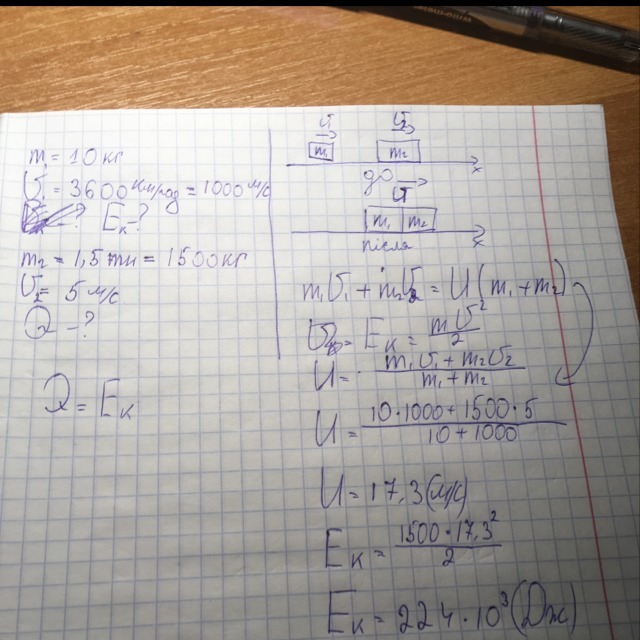 m = 10 кг
υ = 3600 км/год = 1000 м/с
Eₖ - ?
m₂ = 1,5 тн = 1500 кг
υ₂ = 5 м/с
Q - ?
Q = Eₖ
υ υ₂
m₁ m₂
x
до
υ
m₁ m₂
після x
m₁υ₁ + m₂υ₂ = U(m₁ + m₂)
Eₖ = mυ²/2
U = (m₁υ₁ + m₂υ₂)/(m₁ + m₂)
U = (10·1000 + 1500·5)/(10 + 1000)
U = 17,3 (м/с)
Eₖ = (1500·17,3²)/2
Eₖ = 224·10³ (Дж)